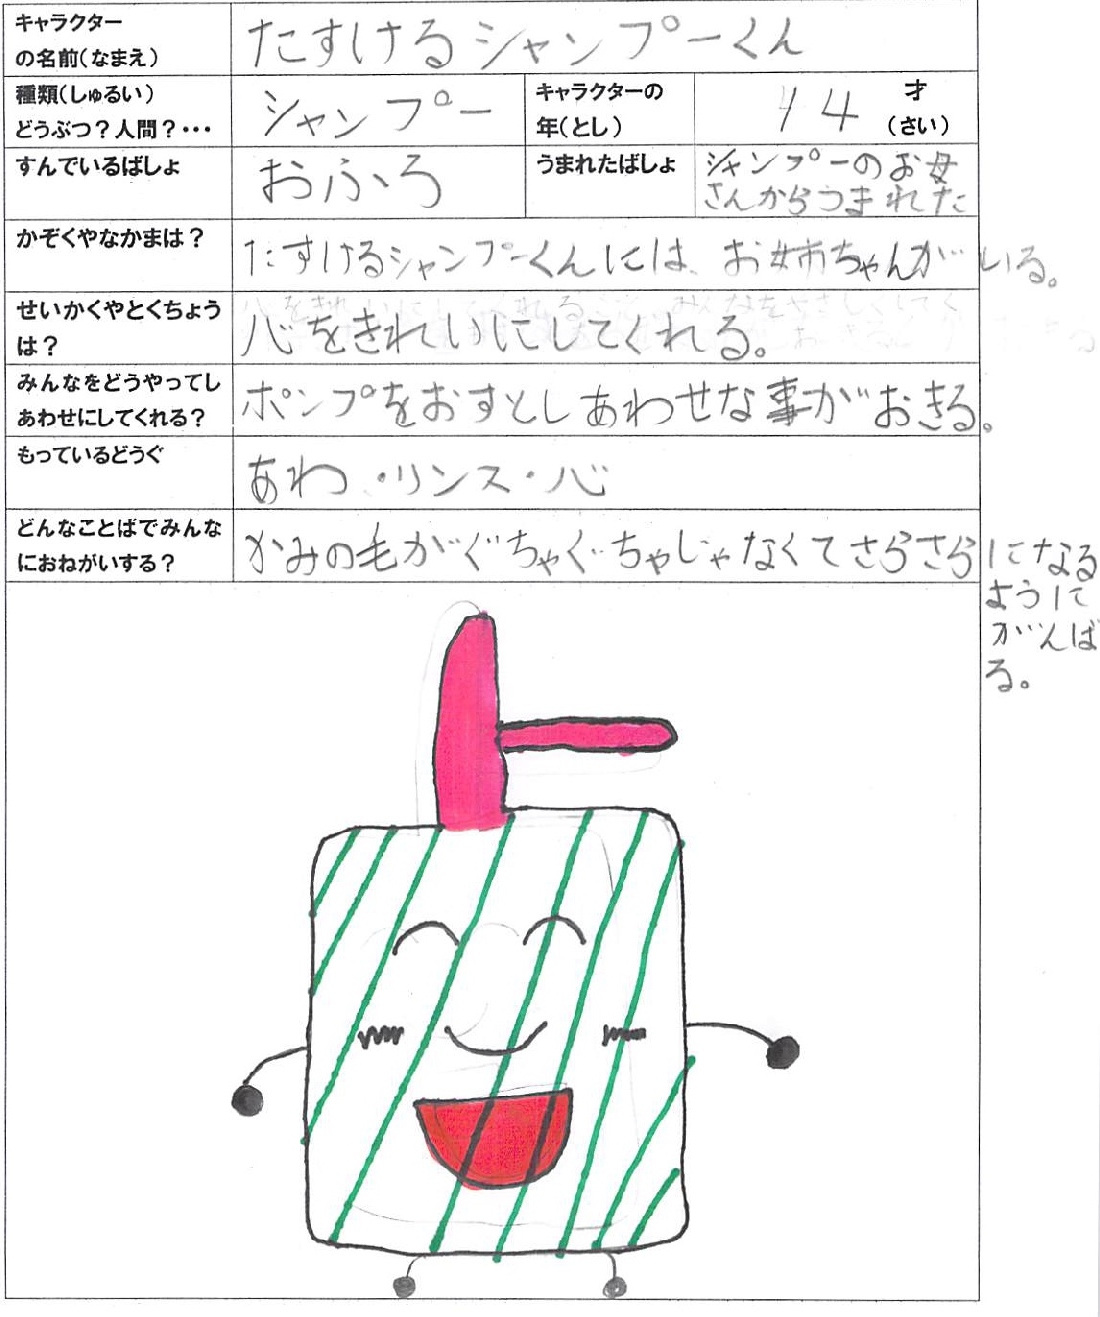 キャラクター
の名前(なまえ)
たすけるシャンプーくん
種類(しゅるい)
どうぶつ?人間?・・・
シャンプー
キャラクターの
年(とし)
14
才
(さい)
すんでいるばしょ
おふろ
うまれたばしょ
シャンプーのお母
さんからうまれた
かぞくやなかまは?
たすけるシャンプーくんには、お姉ちゃんがいる。
せいかくやとくちょう
は?
心をきれいにしてくれる。
みんなをどうやってし
あわせにしてくれる?
ポンプをおすとしあわせな事がおきる。
もっているどうぐ
あわ・リンス・心
どんなことばでみんな
におねがいする?
かみの毛がぐちゃぐちゃじゃなくてさらさらになる
ように
がんば
る。